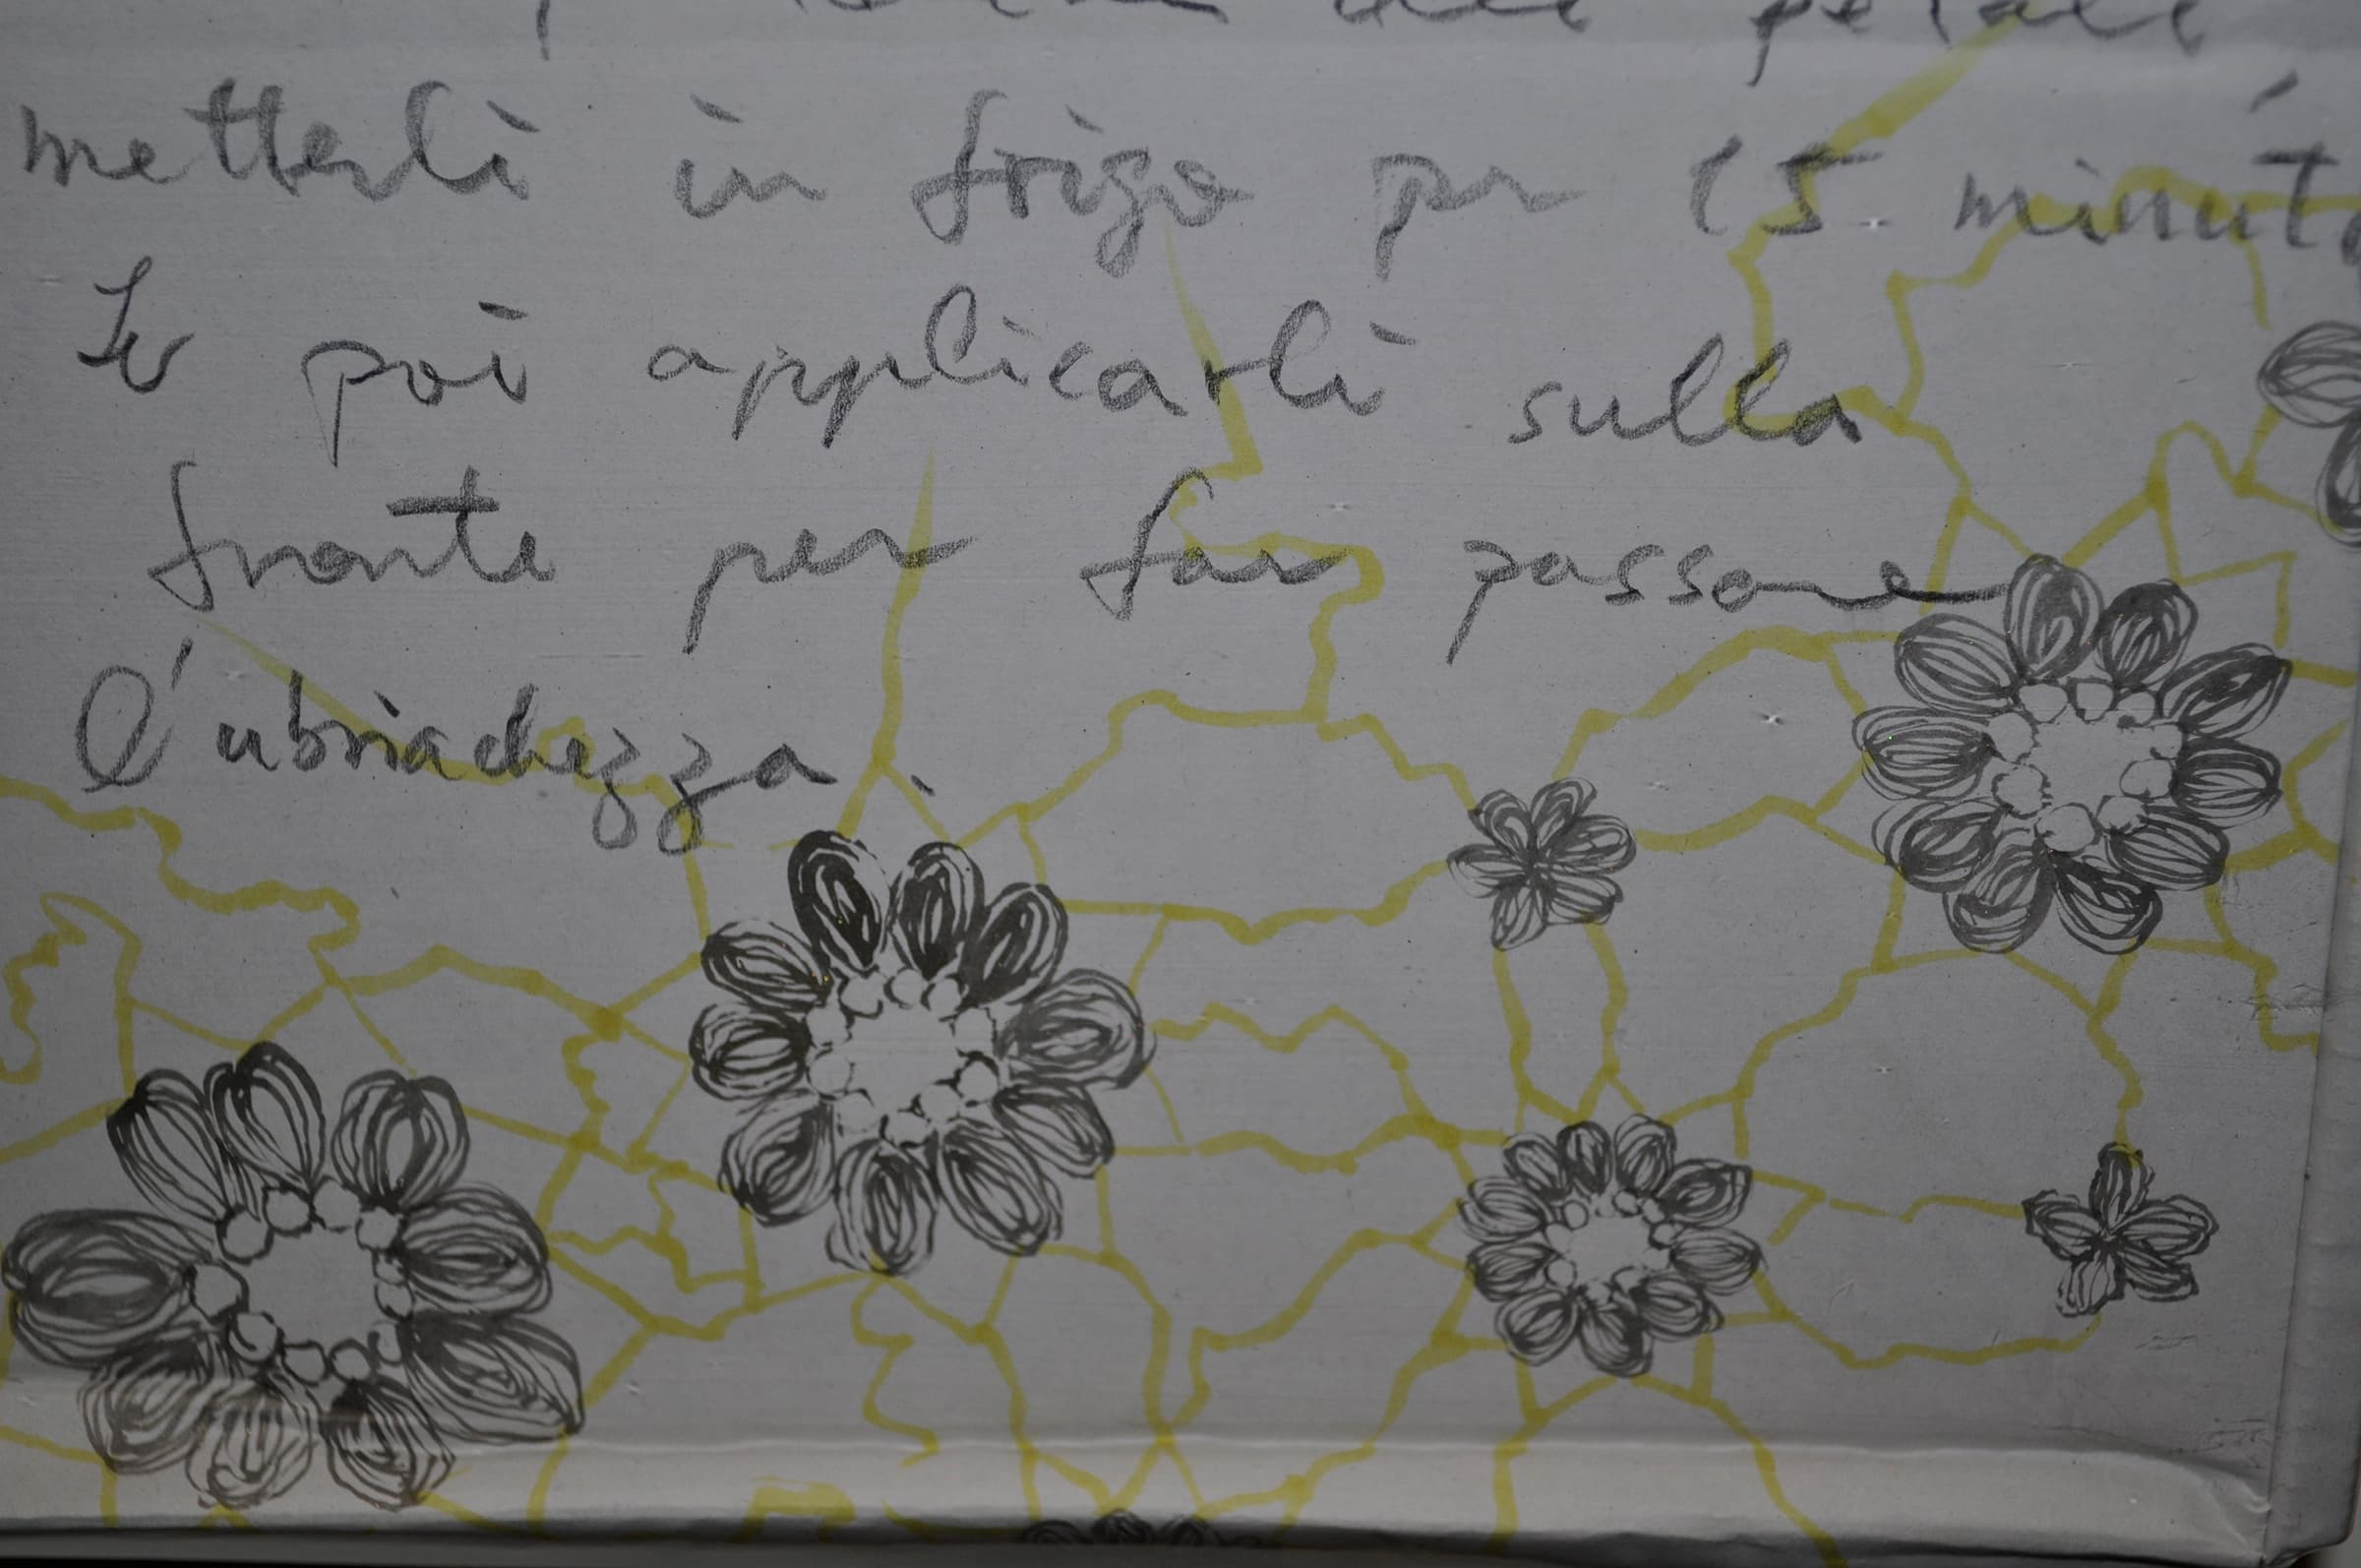 petali
metterli in frigo per 15 minuti
poi applicarli sulla
fronte per far passare
l'ubriachezza.